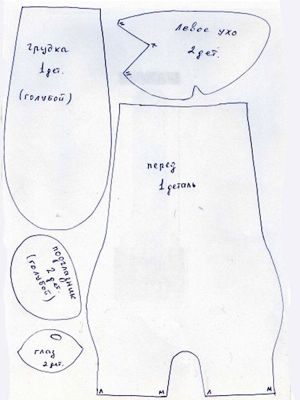 грудка
1 дет.
(голубой)
левое ухо
2 дет.
перед
1 деталь
подглазник
2 дет.
(голубой)
глаз
2 дет.
Л
М
Л
М